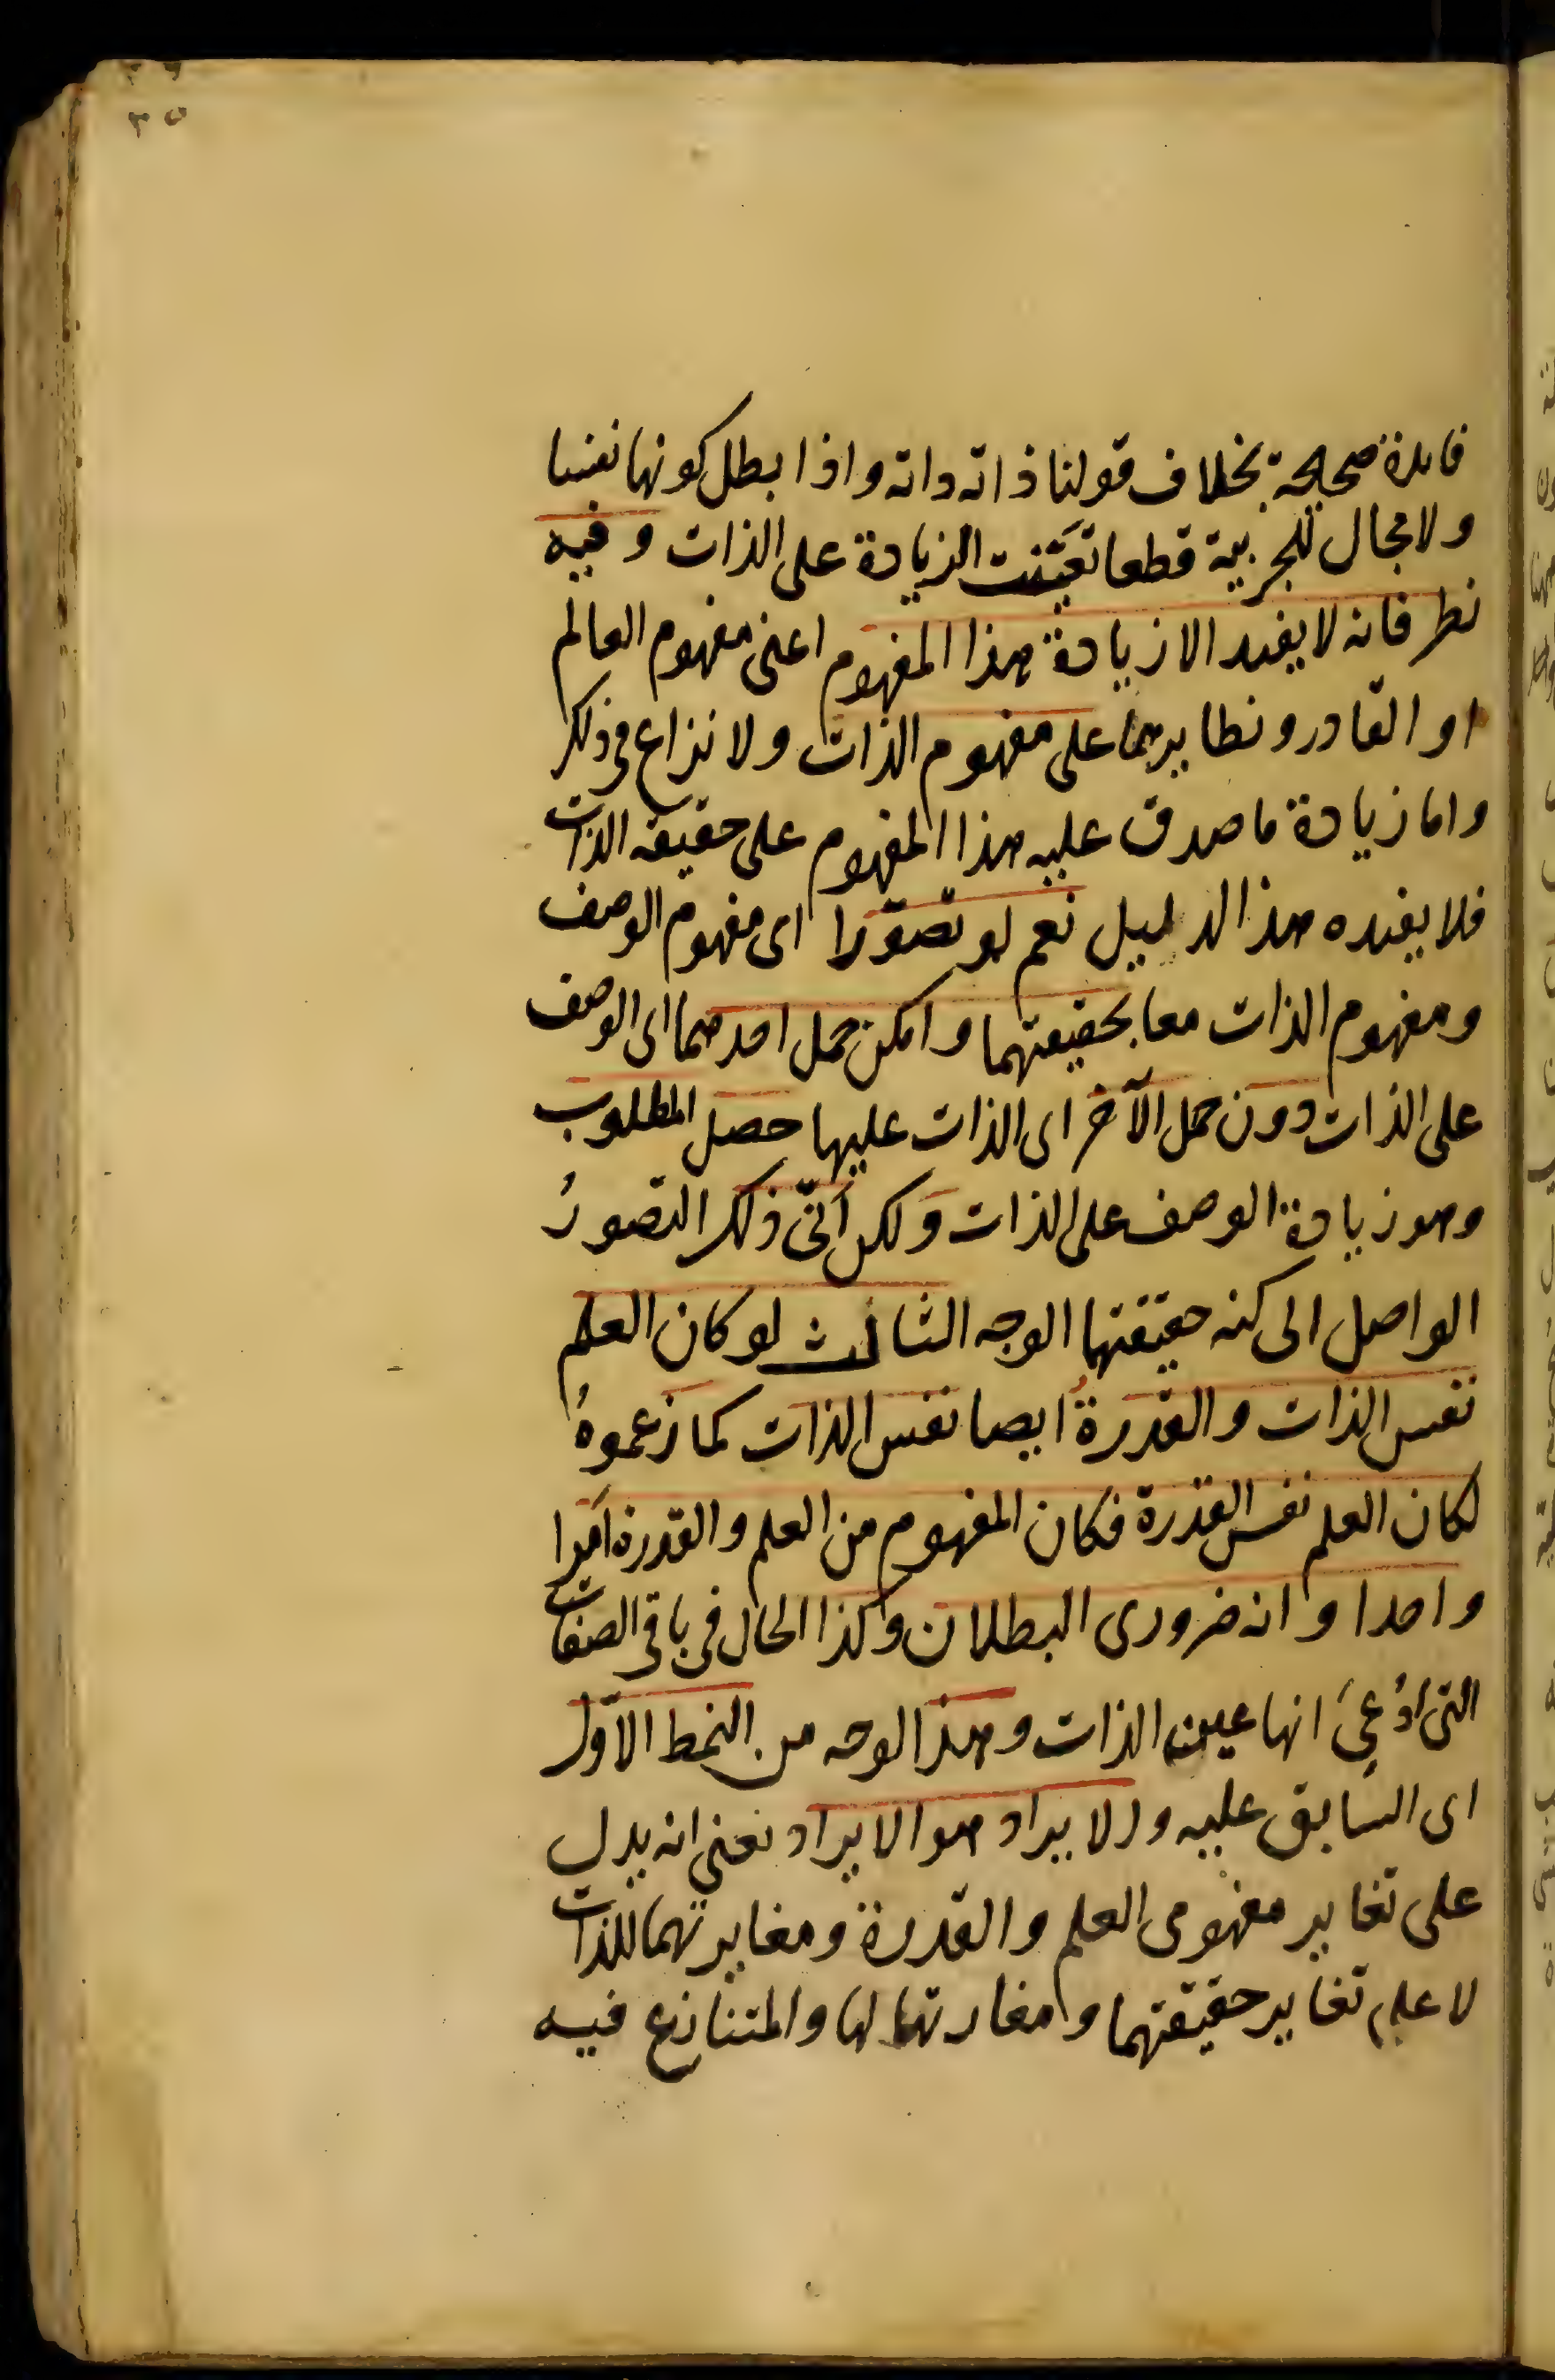 ٣٥
فايدة صحيحة بخلاف قولنا ذاته داته واذا بطل كونها نفسا
ولا مجال للجزيية قطعا تعيّنت الزيادة على الذات وفيه
نظر فانه لا يفيد الا زيادة هذا المفهوم اعنى مفهوم العالم
او القادر ونظايرهما على مفهوم الذات ولا نزاع فى ذلك
واما زيادة ما صدق عليه هذا المفهوم على حقيقه الذات
فلا يفيده هذا الدليل نعم لو تصوّرا اى مفهوم الوصف
ومفهوم الذات معا بحقيقتهما وامكن حمل احدهما اى الوصف
على الذات دون حمل الآخر اى الذات عليها حصل المطلوب
وهو زيادة الوصف على الذات ولكن اَنّى ذلك التصورُ
الواصل الى كنه حقيقتها الوجه الثالث لو كان العلم
نفس الذات والقدرةُ ايضا نفس الذات كما زعموهُ
لكان العلم نفس القدرة فكان المفهوم من العلم والقدرة امرا
واحدا وانه ضرورى البطلان وكذا الحال فى باقى الصفات
التى ادُعِىَ انها عين الذات وهذا الوجه من النمط الاوّل
اى السَابق عليه والايراد هو الايراد نعنى انه يدل
على تغاير مفهومى العلم والقدرة ومغايرتهما للذات
لا على تغاير حقيقتهما ومغارتهما لها والمتنازع فيه